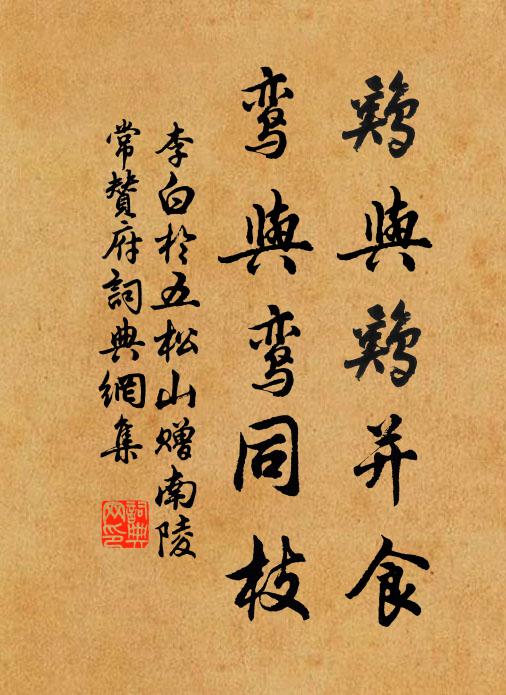 鷄與鷄并食
鸾與鸾同枝
李白於五松山赠南陵
常贊府詞典網集
詞典网印